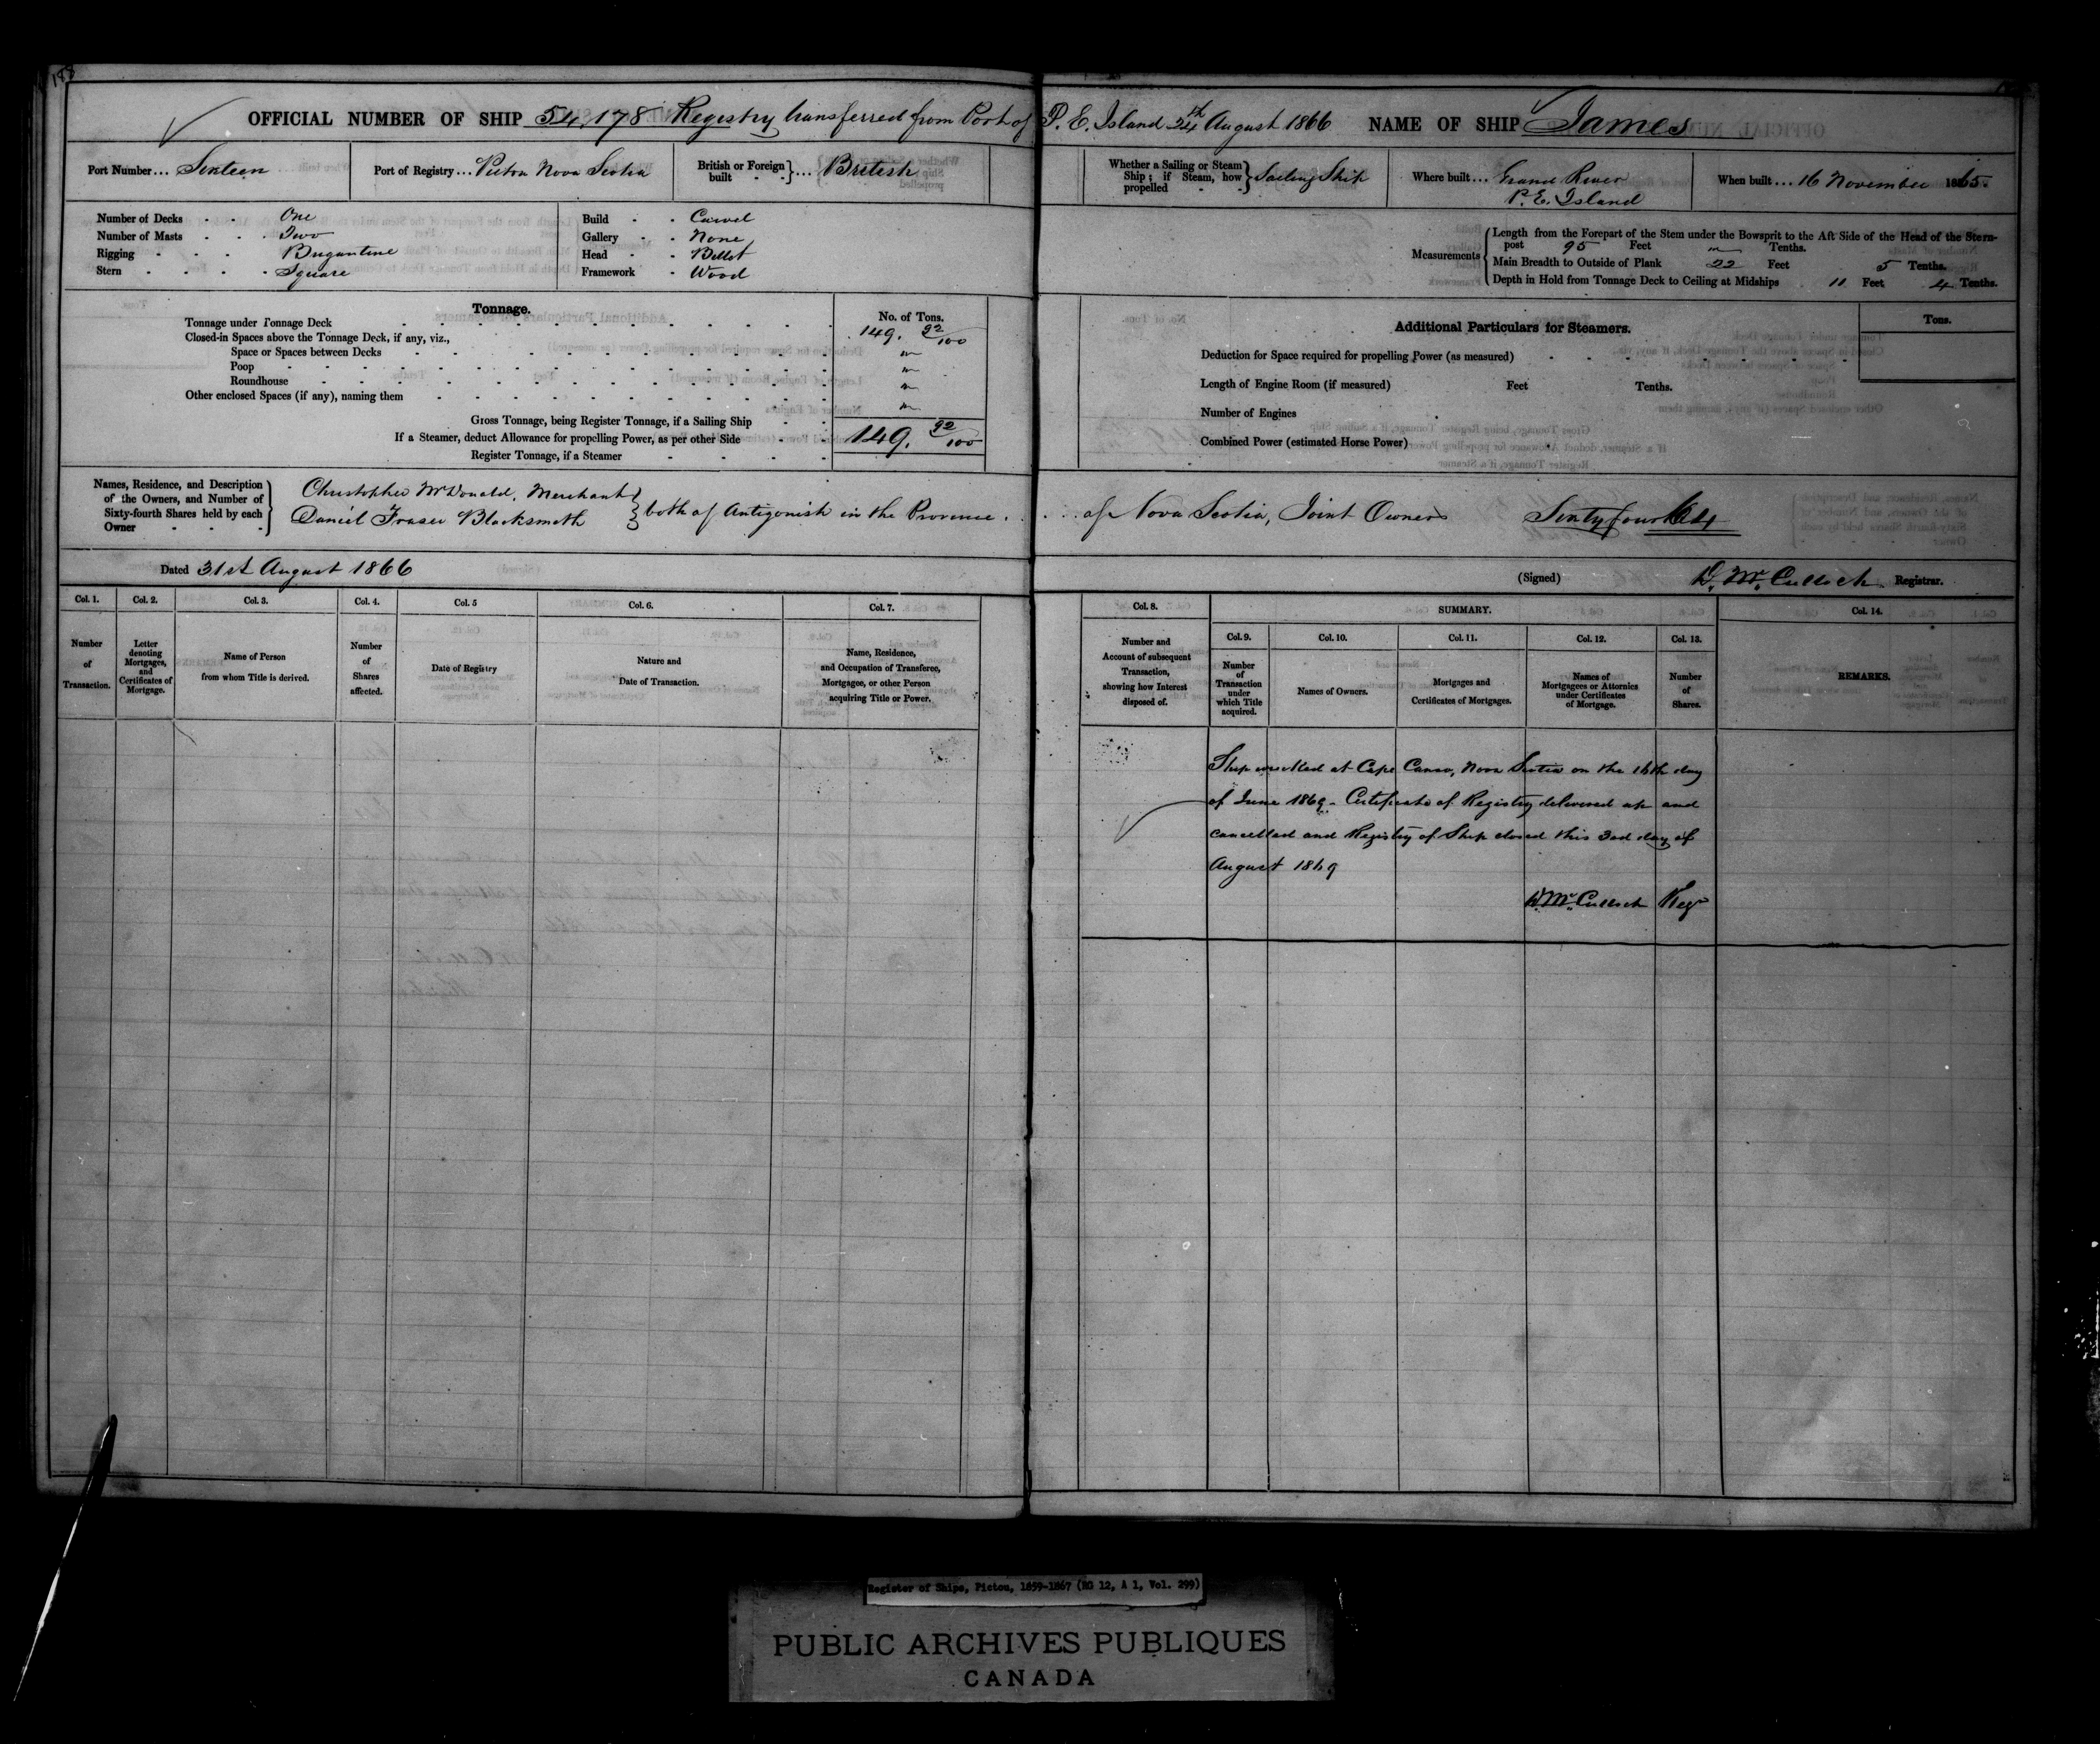 188
OFFICIAL NUMBER OF SHIP 54,178 Registry transferred from Port of P. E. Island 24th August 1866 NAME OF SHIP James
Port Number... Sixteen
Port of Registry... Pictou Nova Scotia
British or Foreign built - - }... British
Whether a Sailing or Steam Ship; if Steam, how propelled - - } Sailing Ship
Where built... Grand River P. E. Island
When built... 16 November 1865
Number of Decks - - One
Number of Masts - - Two
Rigging - - - Brigantine
Stern - - - Square
Build - - Carvel
Gallery - - None
Head - - Billet
Framework - Wood
Measurements { Length from the Forepart of the Stem under the Bowsprit to the Aft Side of the Head of the Stern-
post 95 Feet Tenths.
Main Breadth to Outside of Plank 22 Feet 5 Tenths.
Depth in Hold from Tonnage Deck to Ceiling at Midships 11 Feet 4 Tenths.
Tonnage.
No. of Tons.
Tonnage under Tonnage Deck 149. 92/100
Closed-in Spaces above the Tonnage Deck, if any, viz.,
Space or Spaces between Decks
Poop
Roundhouse
Other enclosed Spaces (if any), naming them
Gross Tonnage, being Register Tonnage, if a Sailing Ship
If a Steamer, deduct Allowance for propelling Power, as per other Side 149. 92/100
Register Tonnage, if a Steamer
Additional Particulars for Steamers.
Tons.
Deduction for Space required for propelling Power (as measured)
Length of Engine Room (if measured) Feet Tenths.
Number of Engines
Combined Power (estimated Horse Power)
Names, Residence, and Description of the Owners, and Number of Sixty-fourth Shares held by each Owner - - -
Christopher McDonald, Merchant
Daniel Fraser Blacksmith } both of Antigonish in the Province . . . . of Nova Scotia, Joint Owners Sixty four 64
Dated 31st August 1866
(Signed) D. McCulloch Registrar.
Col. 1. Number of Transaction.
Col. 2. Letter denoting Mortgages, and Certificates of Mortgage.
Col. 3. Name of Person from whom Title is derived.
Col. 4. Number of Shares affected.
Col. 5 Date of Registry
Col. 6. Nature and Date of Transaction.
Col. 7. Name, Residence, and Occupation of Transferee, Mortgagee, or other Person acquiring Title or Power.
Col. 8. Number and Account of subsequent Transaction, showing how Interest disposed of.
SUMMARY.
Col. 9. Number of Transaction under which Title acquired.
Col. 10. Names of Owners.
Col. 11. Mortgages and Certificates of Mortgages.
Col. 12. Names of Mortgagees or Attornies under Certificates of Mortgage.
Col. 13. Number of Shares.
Col. 14. REMARKS.
Ship wrecked at Cape Canso, Nova Scotia on the 16th day
of June 1869 - Certificate of Registry delivered up and
cancelled and Registry of Ship closed this 3rd day of
August 1869
D. McCulloch Regr
Register of Ships, Pictou, 1859-1867 (RG 12, A 1, Vol. 299)
PUBLIC ARCHIVES PUBLIQUES
CANADA